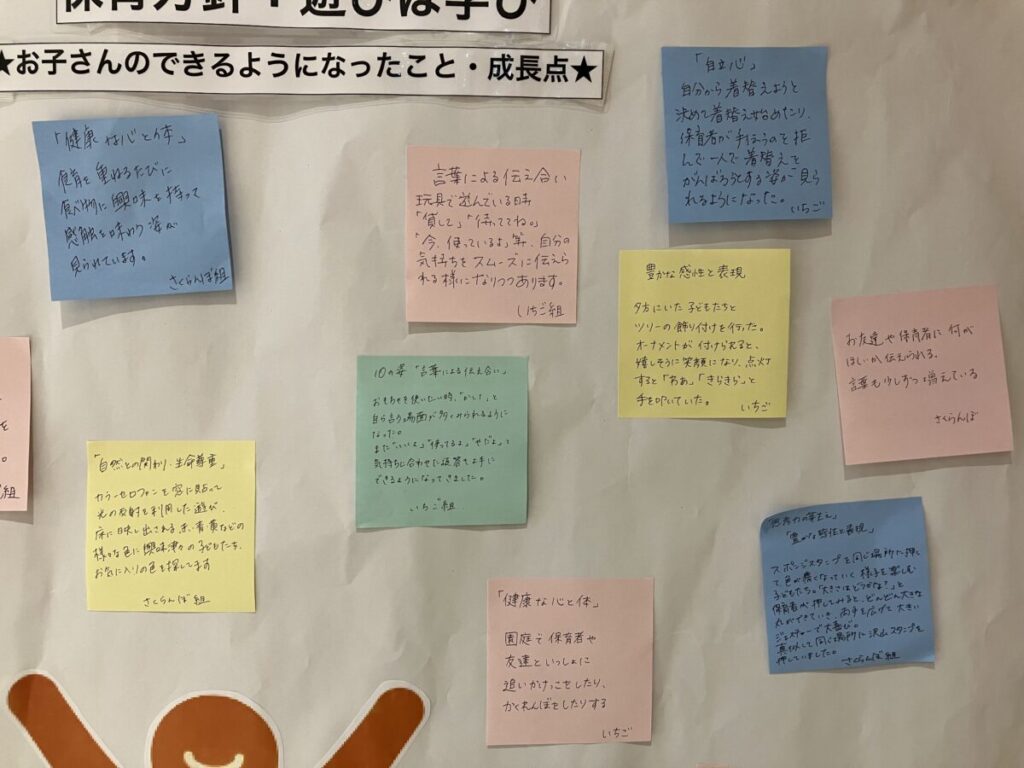 保育方針：遊びは学び
★お子さんのできるようになったこと・成長点★
「健康な心と体」
食育を重ねるたびに
食べ物に興味を持って
感触を味わう姿が
見られています。
さくらんぼ組
言葉による伝え合い
玩具で遊んでいる時
「貸して」「待っててね。」
「今、使っているよ」等、自分の
気持ちをスムーズに伝えら
れる様になりつつあります。
いちご組
「自立心」
自分から着替えようと
決めて着替え始めたり、
保育者が手伝うのを拒
んで一人で着替えを
がんばろうとする姿が見ら
れるようになった。
いちご
豊かな感性と表現
夕方にいた子どもたちと
ツリーの飾り付けを行った。
オーナメントが付けられると、
嬉しそうに笑顔になり、点灯
すると「わぁ」「きらきら」と
手を叩いていた。
いちご
お友達や保育者に何が
ほしいか伝えられる。
言葉も少しずつ増えている
さくらんぼ
10の姿「言葉による伝え合い」
おもちゃを使いたい時、「かして」と
自ら言う場面が多くみられるように
なった。
また"いいよ""使ってるよ""やだよ"って
気持ちに合わせた返答も上手に
できるようになってきました。
いちご組
を
。
組
「自然との関わり・生命尊重」
カラーセロファンを窓に貼って
光の反射を利用した遊び。
床に映し出される赤・青・黄などの
様々な色に興味津々の子どもたち、
お気に入りの色を探してます
さくらんぼ組
「健康な心と体」
園庭で保育者や
友達といっしょに
追いかけっこをしたり、
かくれんぼをしたりする
いちご
「思考力の芽生え」
「豊かな感性と表現」
スポンジスタンプを同じ場所に押し
て、色が濃くなっていく様子を楽しむ
子どもたち。「大きさはどうかな？」と
保育者が押してみると、どんどん大きな
丸ができていき、両手を広げて大きい
ジェスチャーで大喜び。
真似して同じ場所に沢山スタンプを
押していました。
さくらんぼ組